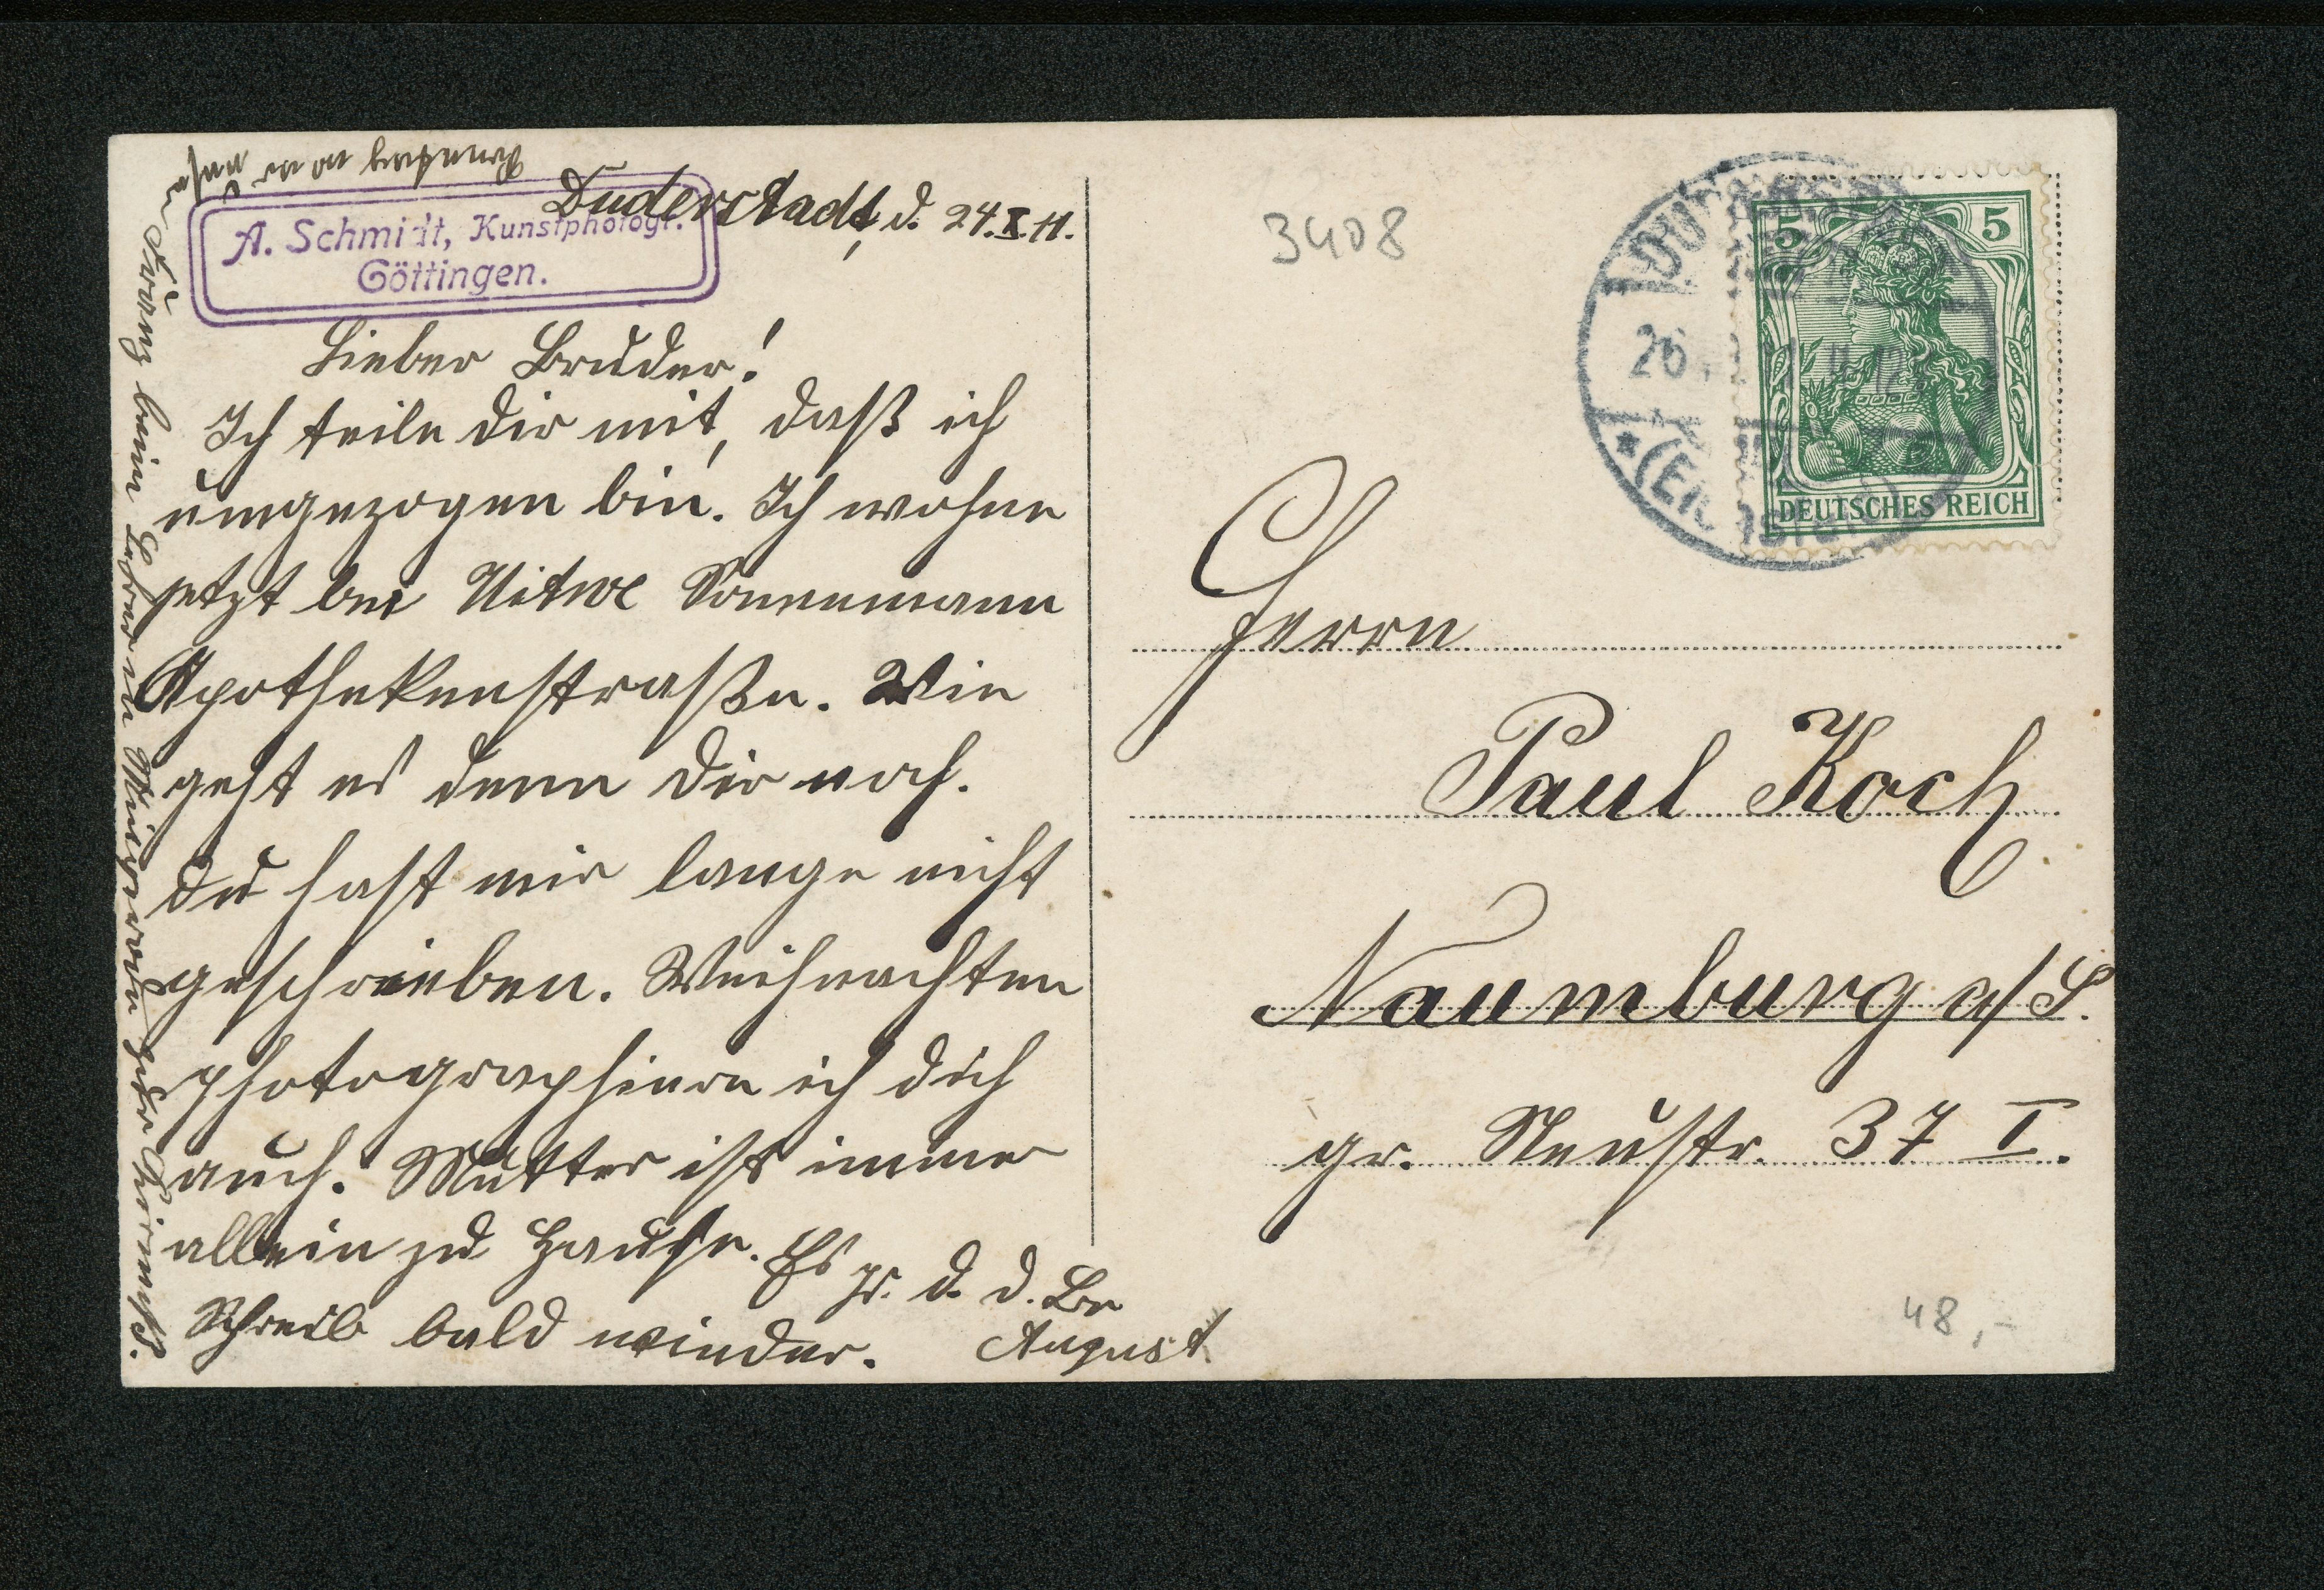 Duderstadt, d. 24.X.11.
A. Schmidt, Kunstphotogr.
Göttingen.
Lieber Bruder!
Ich teile dir mit, daß ich
umgezogen bin. Ich wohne
jetzt bei Witwe Sonnemann
Apothekenstraße. Wie
geht es denn dir noch.
Du hast mir lange nicht
geschrieben. Weihnachten
photographiere ich dich
auch. Mutter ist immer
allein zu Hause. Es gr. d. d. Br
Schreib bald wieder. August
Dienstag war
Franz beim
3408
5 5
DEUTSCHES REICH
26.
Herrn
Paul Koch
Naumburg a/S.
gr. Neustr. 37 I.
48,-